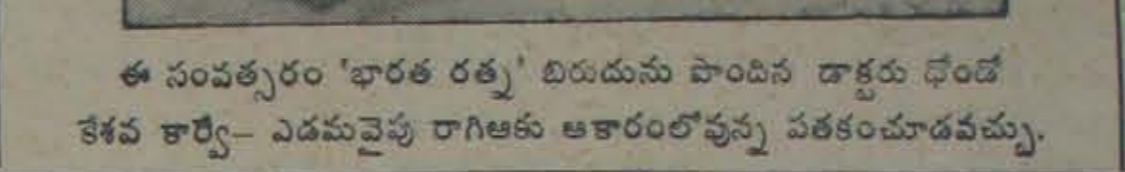 ఈ సంవత్సరం 'భారత రత్న' బిరుదును పొందిన డాక్టరు ధోండో
కేశవ కార్వే— ఎడమవైపు రాగిఆకు ఆకారంలోవున్న పతకంచూడవచ్చు.